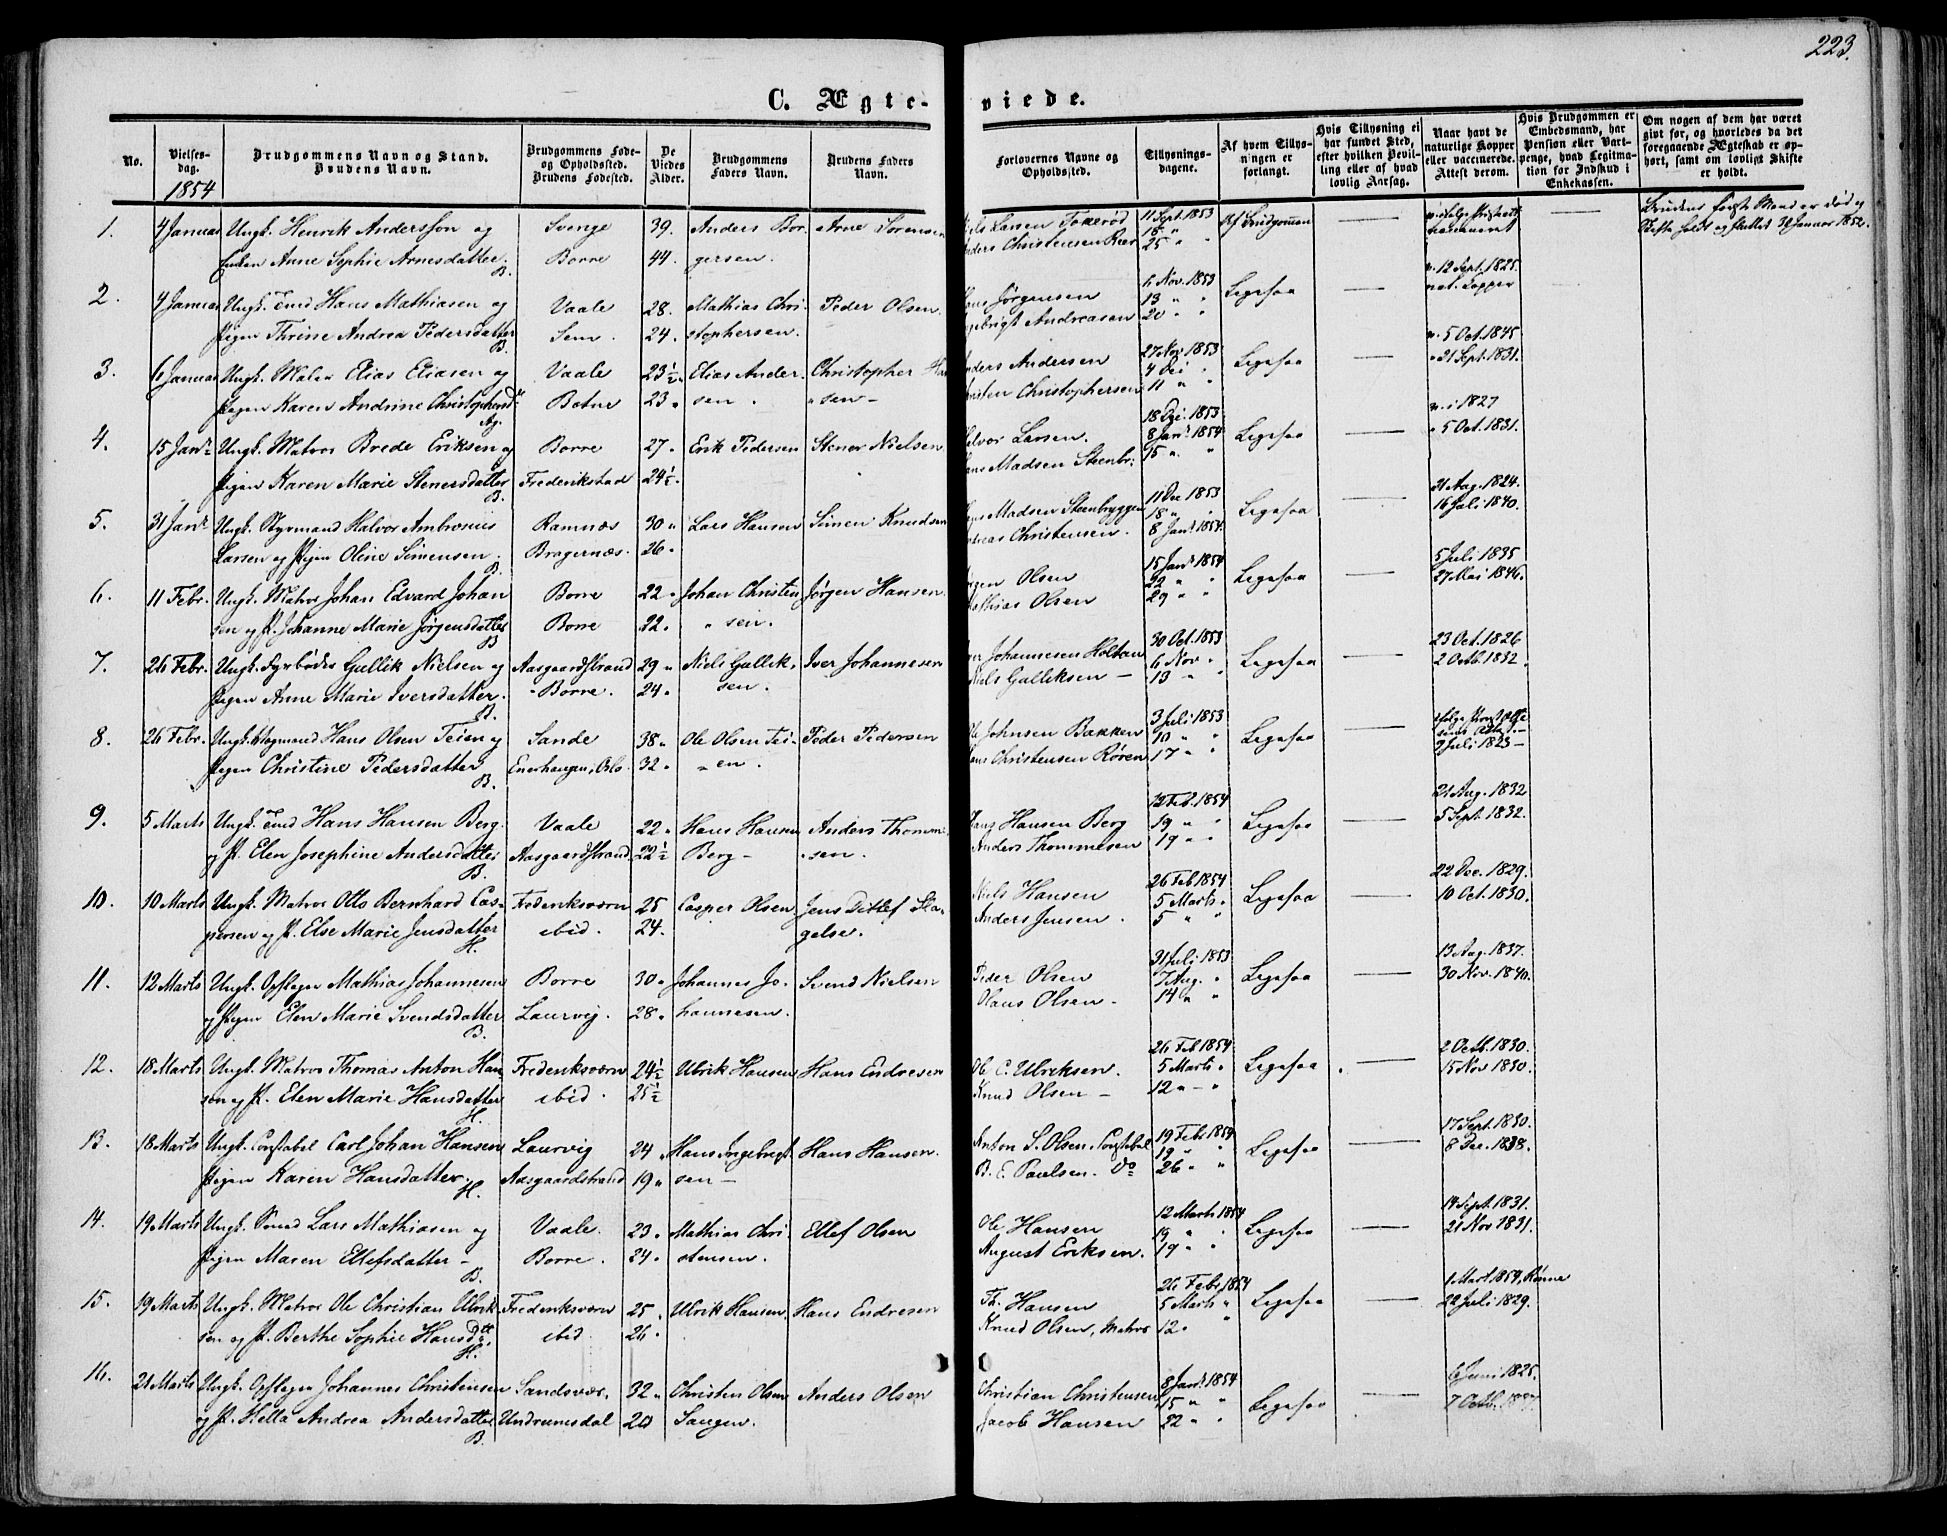 223.
C. Ægteviede.
No.
Vielsesdag. 1854
Brudgommens Navn og Stand. Brudens Navn.
Brudgommens Føde- og Opholdssted. Brudens Fødested.
De Viedes Alder.
Brudgommens Faders Navn.
Brudens Faders Navn.
Forlovernes Navne og Opholdssted.
Tillysningsdagene.
Af hvem Tillysningen er forlangt.
Hvis Tillysning ei har fundet Sted, efter hvilken Bevilling eller af hvad lovlig Aarsag.
Naar havt de naturlige Kopper eller vaccinerede. Attest derom.
Hvis Brudgommen er Embedsmand, har Pension eller Vartpenge, hvad Legitimation for Indskud i Enkekassen.
Om nogen af dem har været givt før, og hvorledes da det foregaaende Ægteskab er ophørt, samt om lovligt Skifte er holdt.
1. 4 Januar Ungk. Henrik Anderssøn og Svenge 39. Anders Bor- Arne Sørensen Niels Larsen Foxerød 11 Sept. 1853 Af Brudgommen — Brudens første Mand er død og
Enken Anne Sophie Arnesdatter. B. Borre 44. gersen. Anders Christensen Rør 25 " " Skifte holdt og sluttet 30 Januar 1852.
2. 4 Januar Ungk. Tend Hans Mathiasen og Vaale 28. Mathias Chri- Peder Olsen. Hans Jørgensen 6 Nov. 1853 13 " " Ligesaa — v. 12 Sept. 1825. nat. Kopper
Pigen Thrine Andrea Pedersdatter B. Sem. 24. stophersen. Ingebrigt Andreasen 20 " "
3. 6 Januar Ungk. Maler Elias Eliasen og Vaale 23½ Elias Ander- Christopher Han Anders Andersen 27 Nov. 1853 4 Dec " Ligesaa — v. 5 Oct. 1845 " 21 Sept. 1831.
Pigen Karen Andrine Christophersd. Botne 23 " sen. " sen - Christen Christophersen 11 " "
4. 15 Janr. Ungk. Matros Brede Eriksen og Borre 27 " Erik Pedersen Stener Nielsen Halvor Larsen. 18 Dec. 1853 8 Janr. 1854 Ligesaa — v. i 1827 " 5 Oct. 1831.
Pigen Karen Marie Stenersdatter B. Frederikstad 24½. Hans Madsen Steenbr: 15 " "
5. 31 Janr. Ungk. Styrmand Halvor Ambrosius Ramnæs 30 " Lars Hansen Simen Knudsen Hans Madsen Steenbryggen 11 Dec 1853 18 " " Ligesaa — 31 Aug. 1824. 16 Juli 1840.
Larsen og Pigen Oline Simensen. B. Bragernæs. 26. Andreas Christensen. 8 Janr. 1854.
6. 11 Febr. Ungk. Matros Johan Edvard Johan Borre 22 " Johan Christen Jørgen Hansen. Jørgen Olsen 15 Janr. 1854 22 " " Ligesaa — 5 Juli 1835 27 Mai 1846.
sen og P. Johanne Marie Jørgensdatter B Borre 22. " sen. Mathias Olsen 29 " "
7. 26 Febr. Ungk. Fyrbøder Gullik Nielsen og Aasgaardstrand 29 " Niels Gullik- Iver Johannesen Iver Johannesen Holtan 30 Oct. 1853 6 Nov " Ligesaa — 23 Oct. 1826 2 Octb. 1832.
Pigen Anne Marie Iversdatter. B. Borre. 24. sen. Niels Gulliksen — 13 " "
8. 26 Febr. Ungk. Hans Olsen Teien og Sande 38 " Ole Olsen Tei- Peder Pedersen Ole Johnsen Bakken 3 Juli 1853 10 " " Ligesaa — 9 Juli 1823 —
Pigen Christine Pedersdatter B. Enerhaugen, Oslo. 32. " en. Hans Christensen Røren 17 " "
9. 5 Marts Ungk. Tend Hans Hansen Berg. Vaale 22 " Hans Hansen Anders Thomme Hans Hansen Berg 12 Feb. 1854 19 " " Ligesaa — 21 Aug. 1832 5 Sept. 1832.
og P. Elen Josephine Andersdatter B. Aasgaardstrand 22½ Berg — " sen. Anders Thommesen 19 " "
10. 10 Marts Ungk. Matros Otto Bernhard Cas- Frederiksværn 25 Casper Olsen Jens Ditlef Sla- Niels Hansen 26 Feb 1854 5 Marts " Ligesaa — 22 Dec. 1829. 10 Oct. 1830.
persen og P. Else Marie Jensdatter H. ibid. 24. gelse. Anders Jensen. 5 " "
11. 12 Marts Ungk. Opflager Mathias Johannesen Borre 30 " Johannes Jo- Svend Nielsen Peder Olsen 31 Juli 1853 7 Aug. " Ligesaa — 13 Aug. 1837. 30 Nov. 1840.
og Pigen Elen Marie Svendsdatter B. Laurvig. 28. hannesen. Olaus Olsen. 14 " "
12. 18 Marts Ungk. Matros Thomas Anton Han Frederiksværn 24½ Ulrik Hansen Hans Endresen Ole C. Ulriksen. 26 Feb 1854 5 Marts " Ligesaa — 2 Octb. 1830. 15 Nov 1830.
sen og P. Elen Marie Hansdatter H. ibid. 25½ Knud Olsen — 12 " — "
13. 18 Marts Ungk. Constabel Carl Johan Hansen Laurvig 24 " Hans Ingebrigt Hans Hansen. Anton S. Olsen. Constabel 19 Febr 1854 19 " " Ligesaa — 17 Sept. 1830. 8 Dec. 1838.
Pigen Karen Hansdatter. H. Aasgaardstrand 19 " sen — B. E. Paulsen. Do 26 " "
14. 19 Marts Ungk. Lars Mathiasen og Vaale. 23 " Mathias Chri- Ellef Olsen Ole Hansen 12 Marts 1854 19 " " Ligesaa — 14 Sept. 1831. 21 Nov 1831.
Pigen Maren Ellefsdatter — B. Borre. 24. stensen. August Eriksen. 19 " "
15. 19 Marts Ungk. Matros Ole Christian Ulrik- Frederiksværn 25 " Ulrik Hansen Hans Endresen Th. Hansen 26 Febr 1854 5 Marts " Ligesaa — 1 Mart. 1854, Rønne 22 Juli 1829.
sen og P. Berthe Sophie Hansdtt. H. ibid. 26. Knud Olsen, Matros 12 " "
16. 21 Marts Ungk. Opflager Johannes Christensen Sandsvær. 32 " Christen Olsen Anders Olsen Christian Christensen 8 Janr. 1854 15 " " Ligesaa — 6 Juni 1825.
og P. Hella Andrea Andersdatter B. Undrumsdal 20 Saugen. Jacob Hansen 22 " "